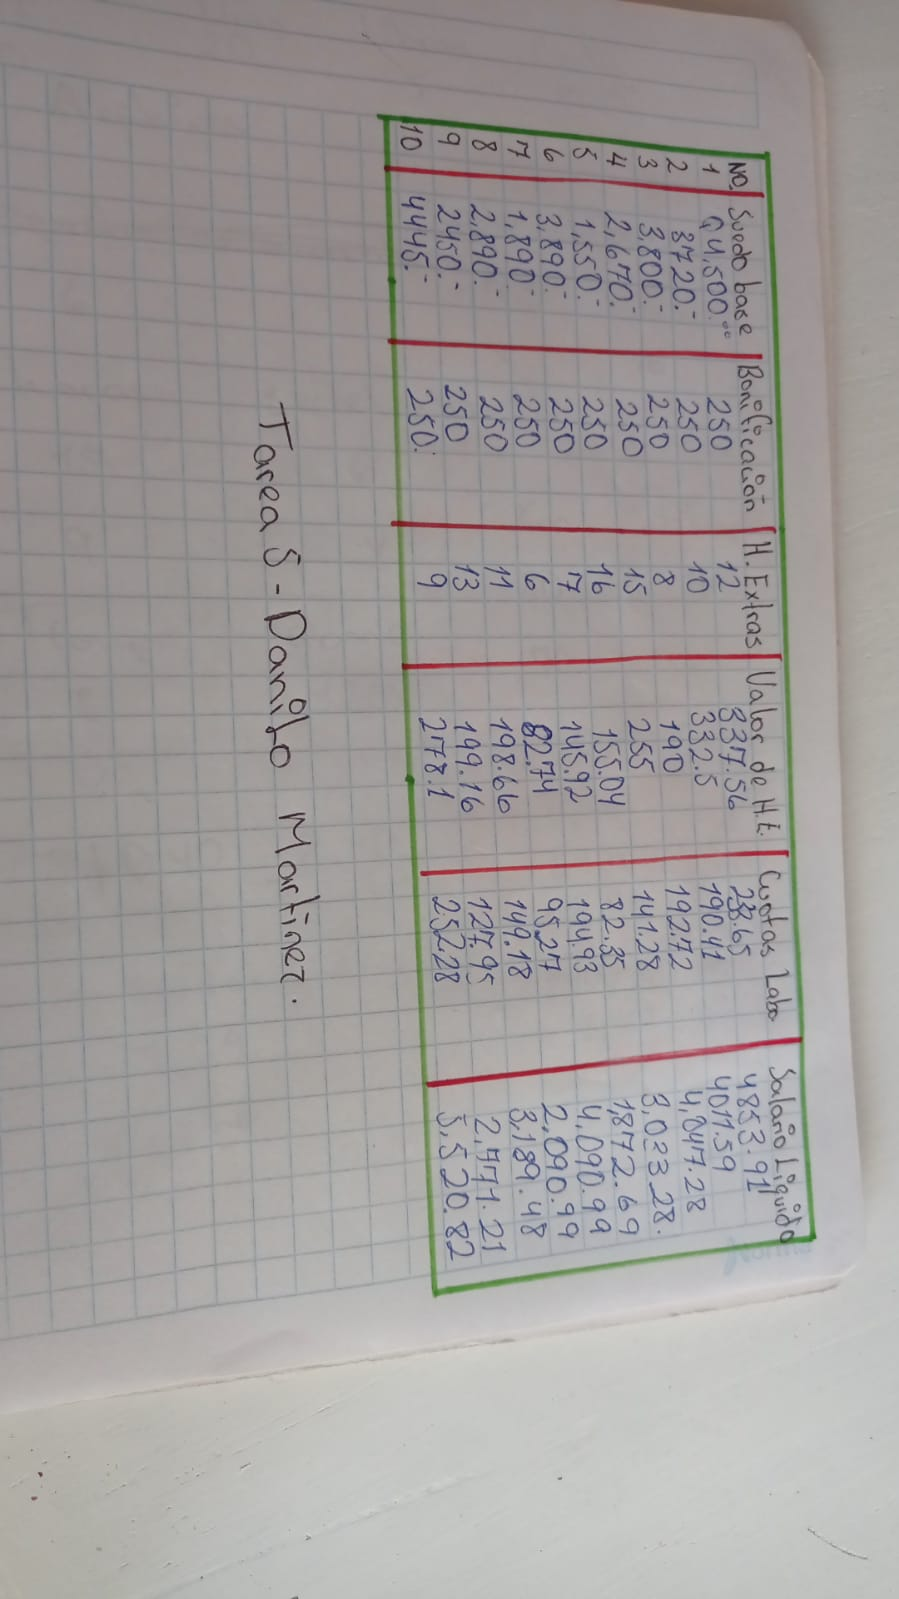 NO. Suedo base Bonificación H. Extras Valor de H.E. Cuotas Labo Salario Liquido
1 Q4,500.00 250 12 337.56 233.65 4853.91
2 3720.- 250 10 332.5 190.41 4011.59
3 3,800.- 250 8 190 192.72 4,047.28
4 2,670.- 250 15 255 141.28 3,033.28.
5 1,550.- 250 16 155.04 82.35 1,872.69
6 3,890.- 250 7 145.92 194.93 4,090.99
7 1,890.- 250 6 82.74 95.27 2,090.99
8 2,890.- 250 11 198.66 149.18 3,189.48
9 2450.- 250 13 199.16 127.95 2,771.21
10 4445.- 250. 9 278.1 252.28 5,520.82
Tarea 5 - Danilo Martinez.
Norma